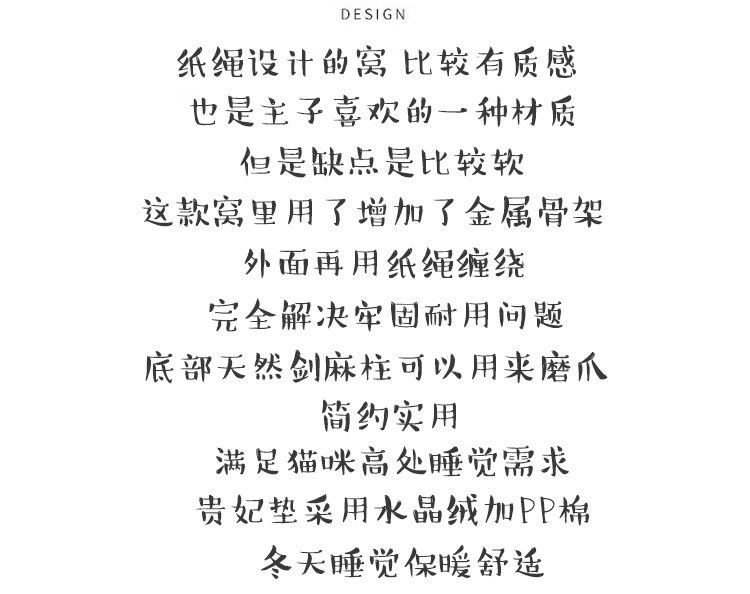 DESIGN
纸绳设计的窝 比较有质感
也是主子喜欢的一种材质
但是缺点是比较软
这款窝里用了增加了金属骨架
外面再用纸绳缠绕
完全解决牢固耐用问题
底部天然剑麻柱可以用来磨爪
简约实用
满足猫咪高处睡觉需求
贵妃垫采用水晶绒加PP棉
冬天睡觉保暖舒适